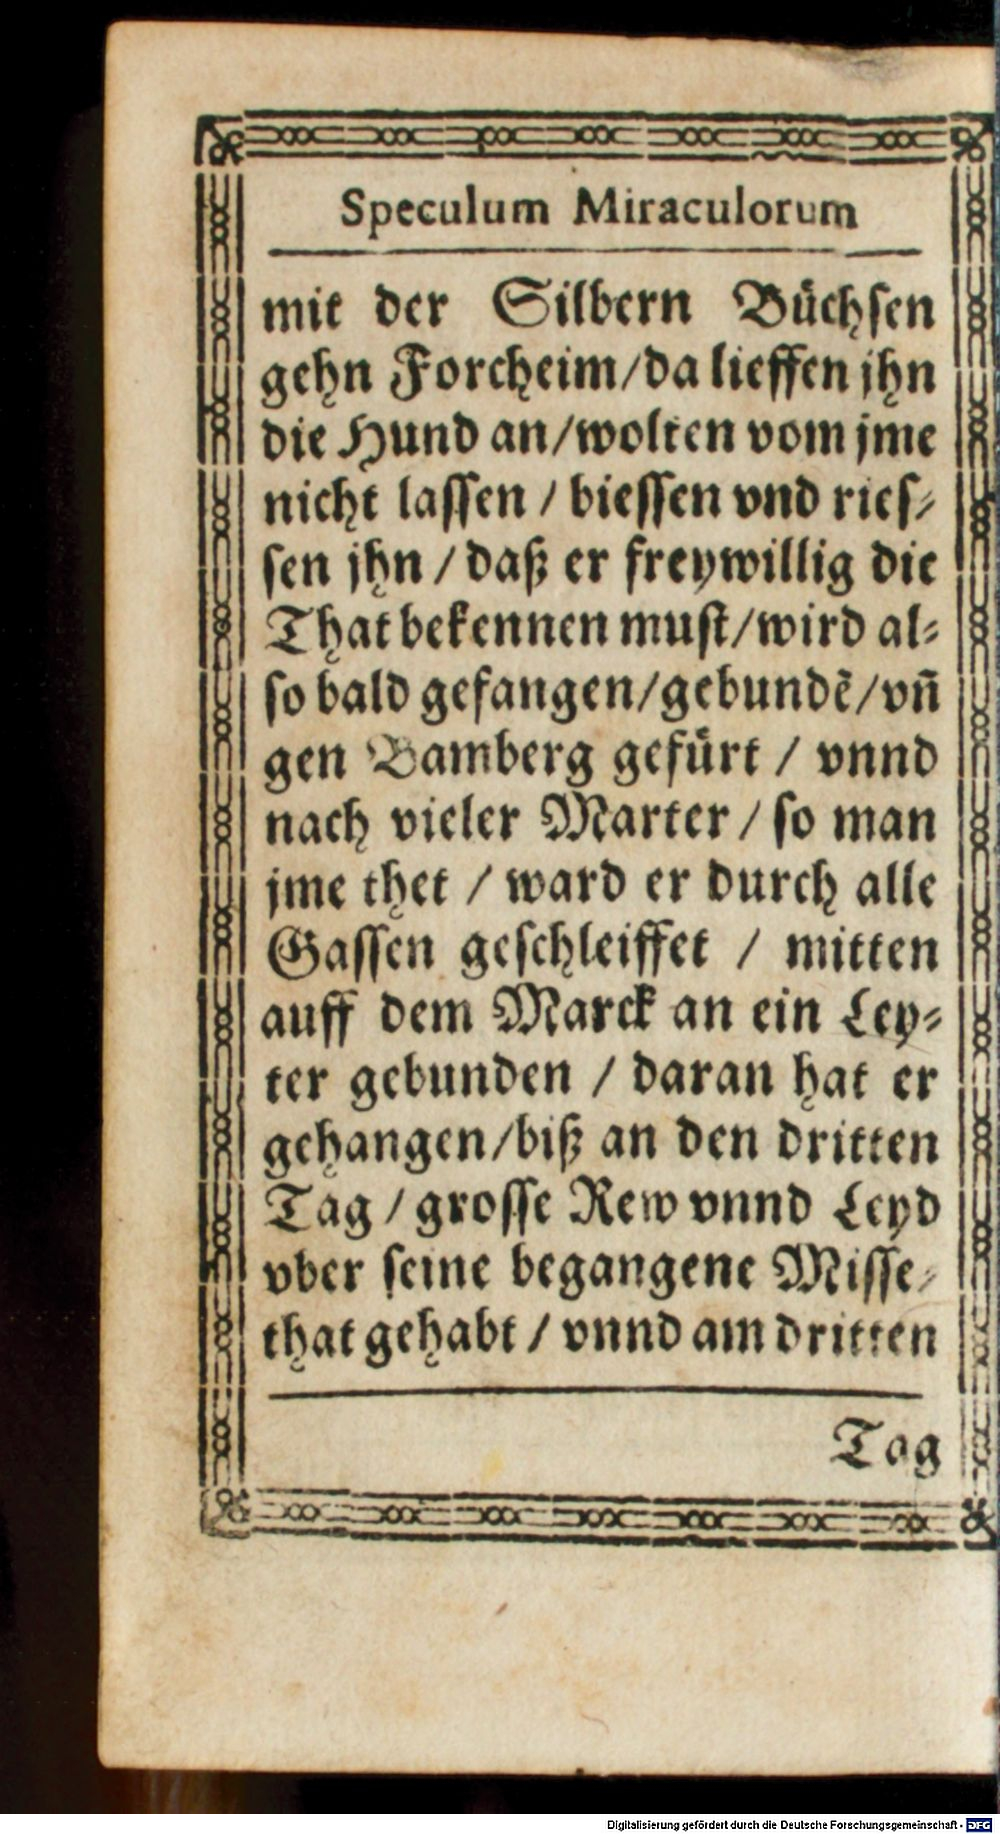 Speculum Miraculorum
mit der Silbern Büchsen
gehn Forcheim/da lieffen jhn
die Hund an/wolten vom jme
nicht lassen / biessen vnd ries-
sen jhn / daß er freywillig die
That bekennen must/wird al-
so bald gefangen/gebundẽ/vñ
gen Bamberg gefürt / vnnd
nach vieler Marter / so man
jme thet / ward er durch alle
Gassen geschleiffet / mitten
auff dem Marck an ein Ley-
ter gebunden / daran hat er
gehangen/biß an den dritten
Tag / grosse Rew vnnd Leyd
vber seine begangene Misse-
that gehabt / vnnd am dritten
Tag
Digitalisierung gefördert durch die Deutsche Forschungsgemeinschaft - DFG